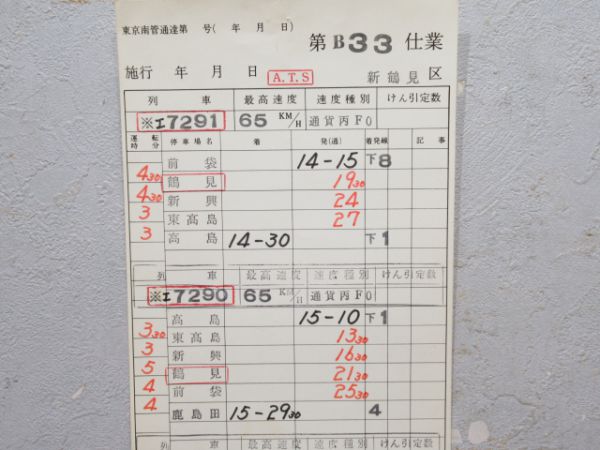 東京南管通達第 号( 年 月 日)
第B33仕業
施行 年 月 日 A.T.S 新鶴見区
列 車 最高速度 速度種別 けん引定数
※エ7291 65 KM/H 通貨丙F0
運転時分 停車場名 着 発(通) 着発線 記事
前袋 14-15 下8
4 30 鶴見 19 30
4 30 新興 24
3 東高島 27
3 高島 14-30 下1
列 車 最高速度 速度種別 けん引定数
※エ7290 65 KM/H 通貨丙F0
高島 15-10 下1
3 30 東高島 13 30
3 新興 16 30
5 鶴見 21 30
4 前袋 25 30
4 鹿島田 15-29 30 4
列 車 最高速度 速度種別 けん引定数